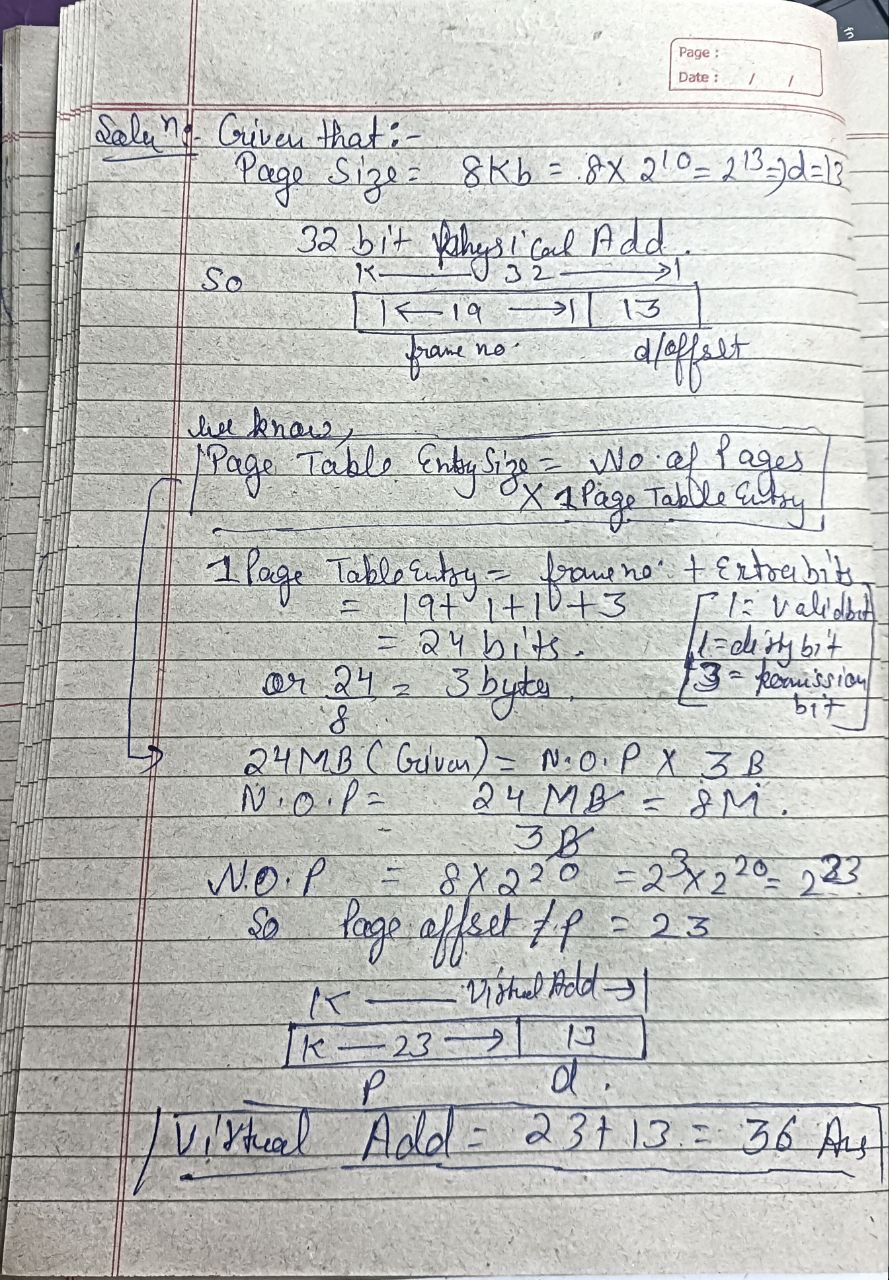 Page :
Date : / /
Soluⁿ:- Given that:-
Page Size = 8Kb = 8 x 2¹⁰ = 2¹³ => d = 13
32 bit Physical Add.
So
32
19 13
frame no. d/offset
we know,
Page Table Entry Size = No. of Pages
X 1 Page Table Entry
1 Page Table Entry = frame no. + Extra bits
= 19 + 1 + 1 + 3 1 = Valid bit
= 24 bits. 1 = dirty bit
or 24/8 = 3 bytes, 3 = permission
bit
24MB (Given) = N.O.P X 3B
N.O.P = 24 MB/3B = 8M.
N.O.P = 8 X 2²⁰ = 2³ x 2²⁰ = 2²³
So Page offset / P = 23
Virtual Add
23 13
P d.
Virtual Add = 23 + 13 = 36 Ans